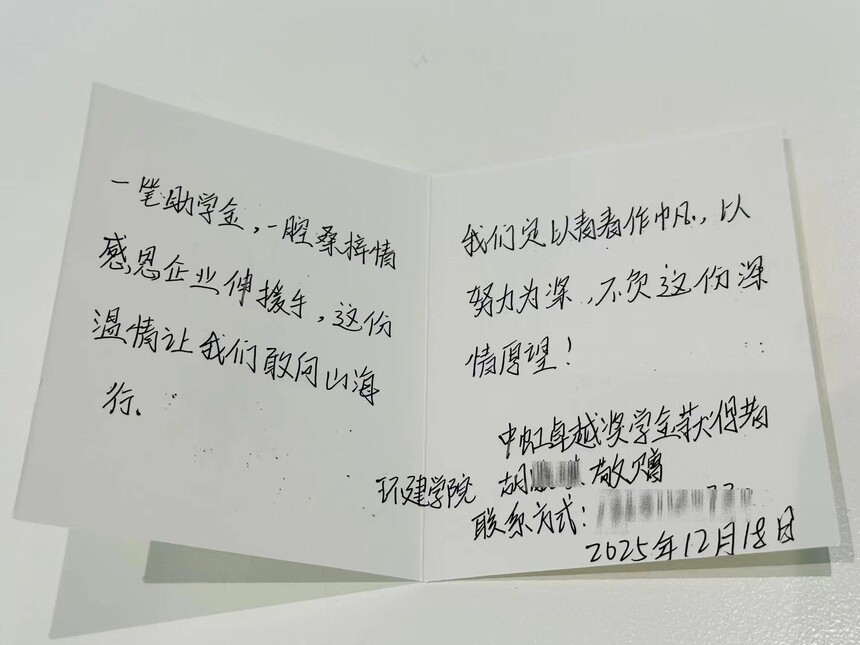 一笔助学金，一腔桑梓情
感恩企业伸援手，这份
温情让我们敢向山海
行.
我们定以青春作帆，以
努力为桨，不负这份深
情厚望！
中虹卓越奖学金获得者
环建学院 胡 敬赠
联系方式：
2025年12月18日